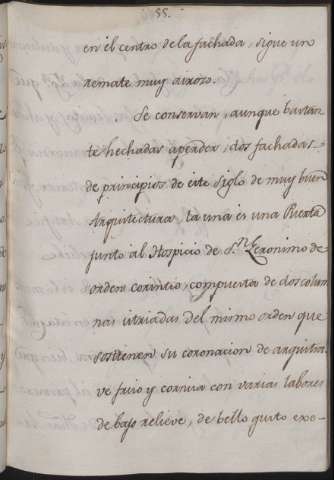 55.
en el centro de la fachada, sigue un
remate muy ayroso.
Se conservan, aunque bastan-
te hechadas aperder, dos fachadas
de principios de este siglo de muy buena
Arquitectura, la una es una Puerta
junto al Hospicio de S.n Geronimo de
orden corintio, compuesta de dos colum
nas istriadas del mismo orden que
sostienen su coronacion de arquitra
ve friso y cornisa con varias labores
de bajo relieve, de bello gusto exe-